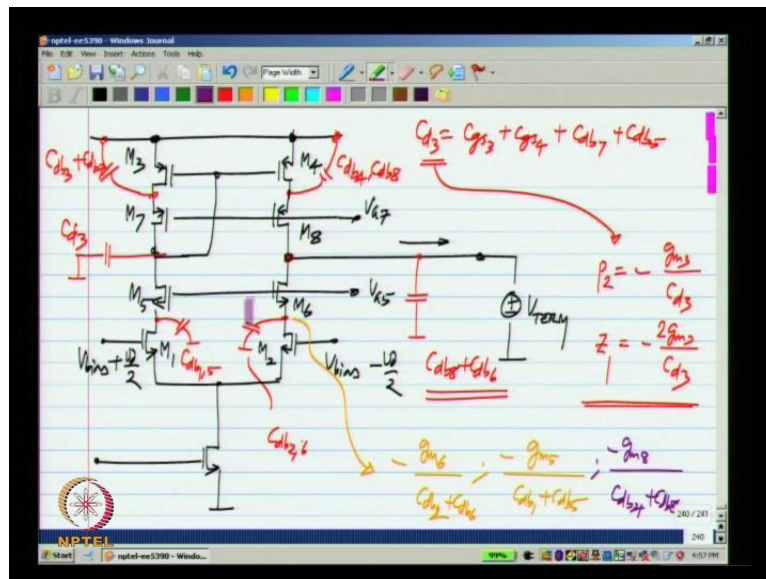 nptel-ee5390 - Windows Journal
File Edit View Insert Actions Tools Help
Page Width
Cd3 = Cgs3 + Cgs4 + Cdb7 + Cdb5
M3
M4
Cdb4, Cdb8
M7
M8
VG7
Cd3
M5
M6
VG5
P2 = - gm3 / Cd3
Z = - 2gm3 / Cd3
VTERM
Vbias + vd/2
M1
Cdb1,5
M2
Vbias - vd/2
Cdb8 + Cdb6
Cdb2,6
- gm6 / Cdb2 + Cdb6 ; - gm5 / Cdb1 + Cdb5 ; - gm8 / Cdb4 + Cdb8
240 / 241
240
NPTEL
Start
nptel-ee5390 - Windo...
99%
4:57 PM